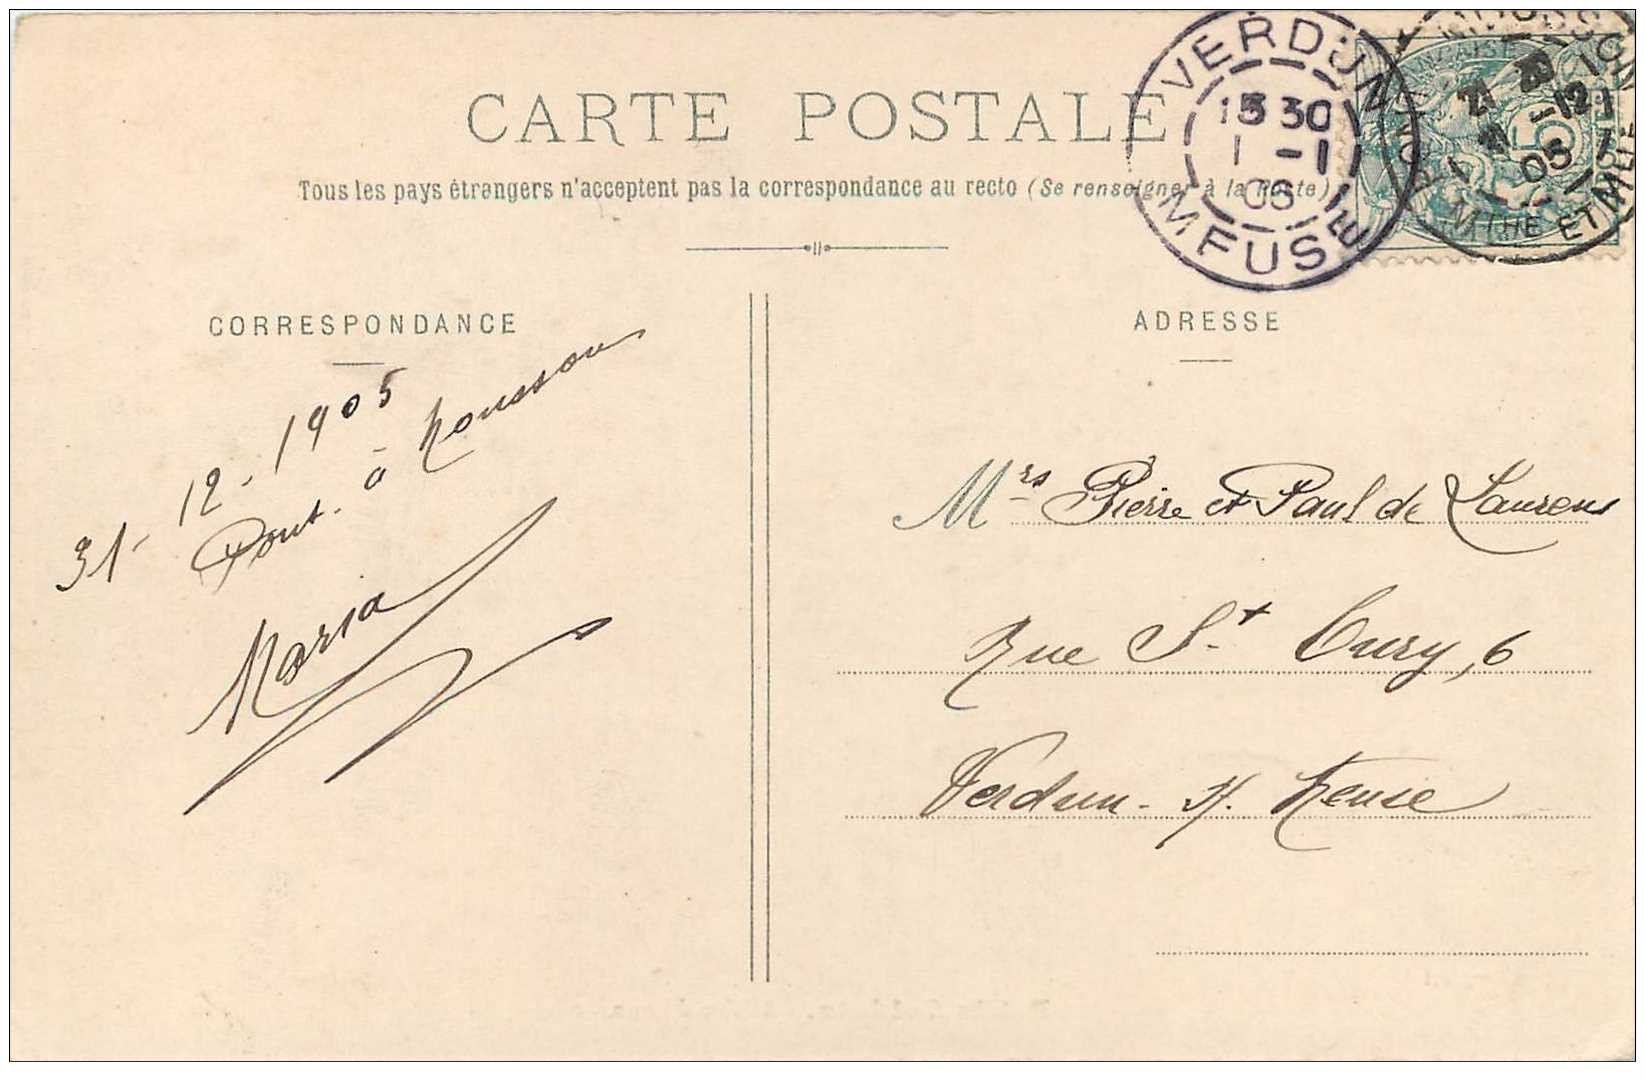 CARTE POSTALE
Tous les pays étrangers n'acceptent pas la correspondance au recto (Se renseigner à la Poste)
VERDUN
15 30
1 -1
06
MEUSE
MOUSSON
12
05
MTHE ET MLLE
5
CORRESPONDANCE
31-12-1905
Pont-à Mousson
Maria
ADRESSE
Mrs Pierre et Paul de Laurens
Rue St Oury, 6
Verdun-s/. Meuse